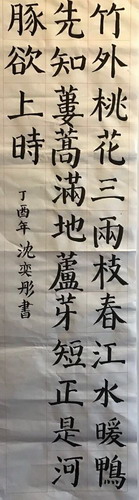 竹外桃花三兩枝春江水暖鴨
先知蔞蒿滿地蘆芽短正是河
豚欲上時
丁酉年沈奕彤書